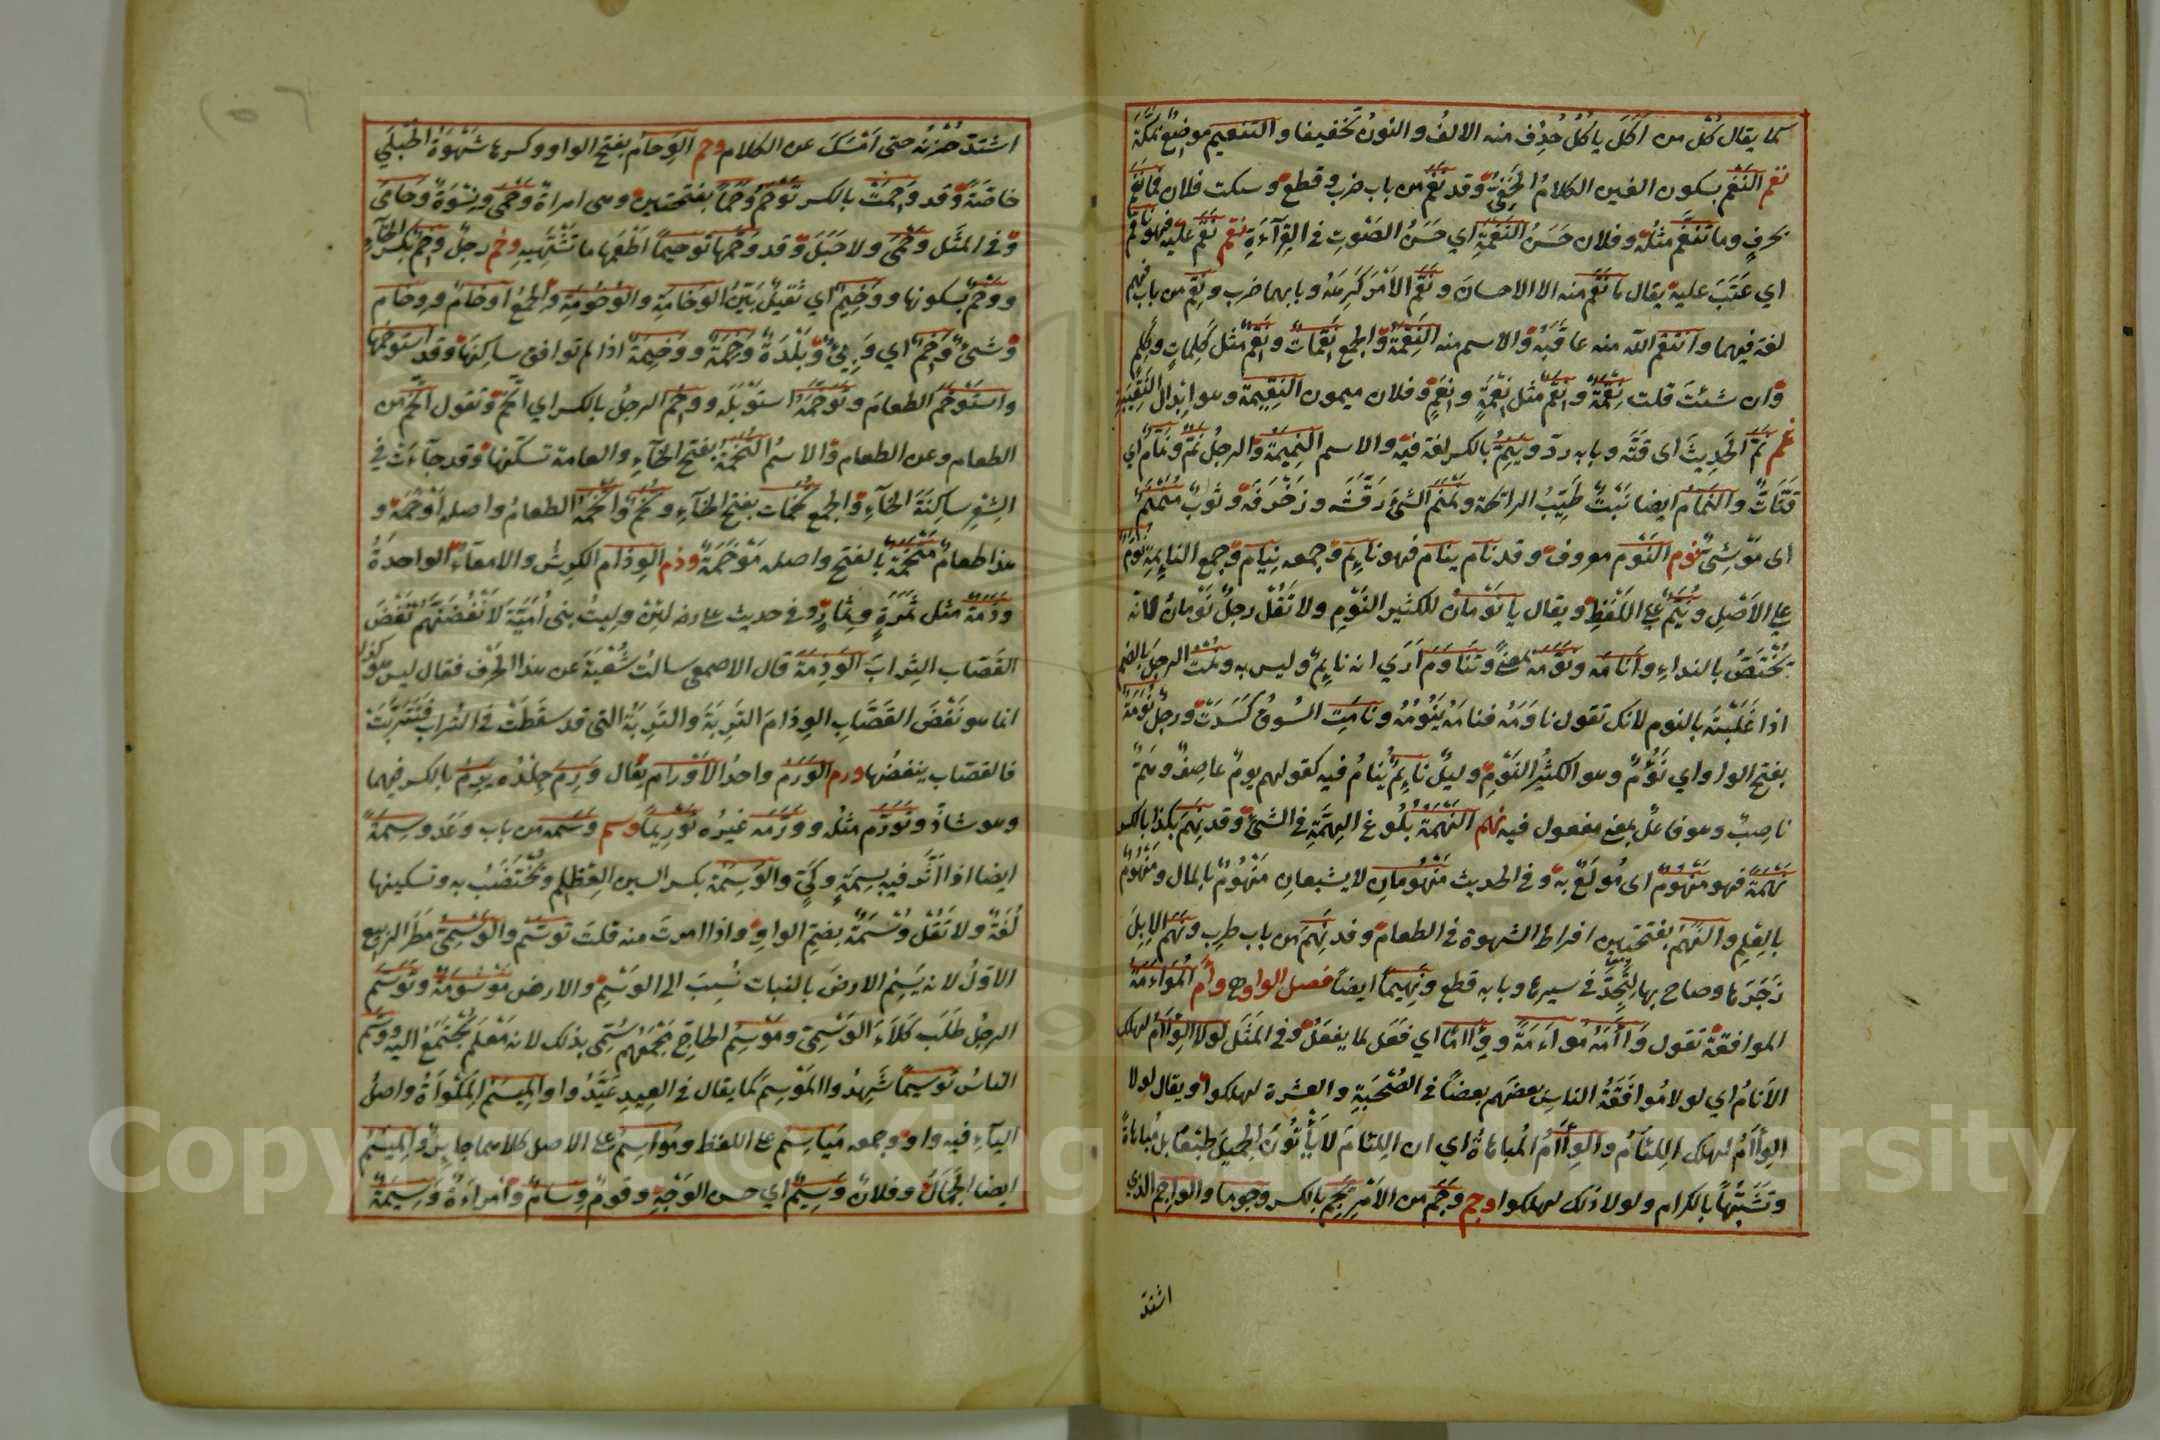 كما يقال كُلْ من اَكَلَ ياكُلُ حُذِف منه الالفُ والنونُ تخفيفا والتنعيم موضِعٌ بمكَّةَ
نغم النَغْم بسكون الغين الكلامُ الخَفِيُّ وقد نَغَم من باب ضرب وقطع وسكت فلان فما نَغَمَ
بحرفٍ وما تَنَغَّمَ مثلُه وفلان حَسَنُ النَغْمَةِ اي حَسَنُ الصَّوتِ في القِرآءَةِ نقم نَقَمَ عليه فهو ناقم
اي عَتَبَ عليه يقال ما نَقَمَ منه الا الاحسانَ ونَقَمَ الاَمْرَ كَرِهَهُ وبابهما ضرب ونَقِمَ من باب فهم
لغة فيهما وانْتَقَمَ اللّه منه عاقَبَهُ والاسم منه النَقِمَةُ والجمع نَقِماتٌ ونَقِمٌ مثل كَلِمَاتٍ وكَلِمٍ
وان شئتَ قلت نِقْمَةٌ ونِقَمٌ مثل نِعْمَةٍ ونِعَمٍ وفلان ميمون النَقِيمة وهو ابدال النَقِيْبَةِ
نمم نَمَّ الحَدِيثَ اى قَتَّه وبابه ردّ ويَنِمُّ بالكسر لغة فيه والاسم النَمِيمَةُ والرجلُ نَمٌّ ونَمَّامٌ اي
قَتَّاتٌ والنَمَّام ايضا نَبْتٌ طَيِّبُ الرائحة ونَمْنَمَ الشئَ رَقَّشَه وزَخْرَفَه وثَوبٌ مُنَمْنَمٌ
اى مَوْشِيٌّ نوم النَوْم معروف وقد نام ينام فهو نائِم وجمعه نِيام وجمع النائِمِ نُوَّمٌ
علي الاَصْلِ ونُيَّمٌ علي اللَفْظِ ويقال يا نَوْمانُ للكثير النَوْمِ ولا تَقُلْ رجلٌ نَوْمانُ لانه
يَخْتَصُّ بالنداءِ واَنَامَه ونَوَّمَه بمعنًى وتَنَاوَمَ اَرَي انه نائِمٌ وليس به ونُمْتُ الرجلَ بالضم
اذا غَلَبْتَه بالنوم لانك تقول ناوَمَهُ فنامَهُ يَنُوْمُهُ ونامَتِ السُوقُ كَسَدَتْ ورجلٌ نُوَمَةٌ
بفتح الواو اي نَؤُمٌ وهو الكثيُر النَوْمِ وليلٌ نائِمٌ يُنامُ فيه كقولهم يومٌ عاصِفٌ وهَمٌّ
ناصِبٌ وهو فاعلٌ بمعني مفعول فيه نهم النَهْمَةُ بُلُوغ الهِمَّةِ في الشئ وقد نُهِمَ بكذا بالكسر
نَهْمَةً فهو مَنْهُومٌ اى مُولَعٌ به وفي الحديث مَنْهُومانِ لا يشبعانِ مَنْهُومٌ بالمال ومَنْهُومٌ
بالعِلمِ والنَهَمُ بفتحتين افراط الشهوة في الطعام وقد نَهِمَ من باب طرِب ونَهَمَ الاِبِلَ
زَجَرَها وصاح بها لِتَجِدَّ في سيرها وبابه قطع ونَهِيْمًا ايضًا فصل الواو وأم المُوَاءَمَة
الموافقة تقول وَاأَمَهُ مُواءَمَةً ووِئَامًا اي فَعَل لما يفعَلُ وفي المَثَل لولا الوِئَامُ لهلك
الاَنامُ اي لولا مُوافَقَةُ الناسِ بعضِهم بعضًا في الصُحْبَةِ والعشرة لهلكوا ويقال لولا
الوِئَامُ لهلك اللِئَامُ والوِئَامُ المُباهاةُ اي ان اللِئامَ لا يَأْتُوْنَ الجميلَ طَبْعًا بل مُباهاةً
وتَشَبُّهًا بالكرام ولولا ذلك لهلكوا وجم وَجَمَ من الاَمْرِ يَجِمُ بالكسر وُجُومًا والواجم الذي
اشتدّ
اشتدّ حُزْنُه حتى اَمْسَكَ عن الكلام وحم الوَِحَام بفتح الواو وكسرها شَهْوَةُ الحُبْلَي
خاصَّةً وقد وَحِمَتْ بالكسر تَوْحَمُ وَحَمًا بفتحتين وهى امراةٌ وَحْمَى ونِسْوَةٌ وَحَامَى
وفي المثَل وَحْمَى ولا حَبَلَ وقد وَحَّمَها تَوحيمًا اَطْعَمَها ما تَشْتَهِيهِ وخم رجلٌ وَخِمٌ بكسر الخآءِ
ووَخْمٌ بسكونها ووَخِيمٌ اي ثقيلٌ بَيِّنُ الوَخامَةِ والوُخُومَةِ والجمعُ اَوْخامٌ ووِخام
وشئٌ وَخِمٌ اي وَبِئٌ وبَلْدَةٌ وَخِمَةٌ ووَخِيمَةٌ اذا لم توافق ساكِنَها وقد استوخمها
واستَوْخَمَ الطعامَ وتَوَخَّمَهُ استَوْبَلَه ووَخِمَ الرجلُ بالكسر اي اتَّخَمَ وتقول اتَّخَمَ من
الطعام وعن الطعام والاسمُ التُخَمَةُ بفتح الخآءِ والعامة تسكّنها وقد جآءَتْ في
الشِعْرِ ساكِنَةَ الخآءِ والجمع تُخَمَات بفتح الخآءِ وتُخَمٌ واَتْخَمَهُ الطعامُ واصله اَوْخَمَهُ و
هذا طعامٌ مَتْخَمَةٌ بالفتح واصله مَوْخَمَةٌ وذم الوِذَام الكَرِشُ والامعآءُ الواحدَةُ
وَذَمَةٌ مثل ثَمَرَةٍ وثِمَارٍ وفي حديث علي رضه لئن وليتُ بنى اُمَيَّةَ لَاَنْفُضَنَّهُم نَفْضَ
القَصّاب التِرابَ الوَذِمَةَ قال الاصمعي سالتُ شُعْبَةَ عن هذا الحَرْف فقال ليس هو كذا
انما هو نَفْضَ القَصّابِ الوِذَامَ التَرِبَةَ والتَرِبَةُ التى قد سقَطَتْ في التُراب فتَتَرَّبَتْ
فالقصّاب ينفضُها ورم الوَرَمُ واحدُ الاَوْرام يقال وَرِمَ جِلْدُه يَرِمُ بالكسر فيهما
وهو شاذٌّ وتَوَرَّم مثلُه ووَرَّمَه غيرُه تَوْرِيمًا وسم وَسَمَه من باب وعَدَ وسِمَةً
ايضا اذا اَثَّر فيه بِسِمَةٍ وكَيٍّ والوَسِمَة بكسر السين العِظْلِم يُخْتَضَبُ به وتسكينها
لُغَةٌ ولا تَقُلْ وُسْمَةٌ بضمّ الواوِ واذا امرتَ منه قلتَ تَوسَّمْ والوَسْمِيُّ مطَرُ الربيع
الاوّلُ لانه يَسِمُ الارضَ بالنبات نُسِبَ الى الوَسْمِ والارض مَوْسُومَةٌ وتَوَسَّمَ
الرجلُ طَلَبَ كَلَاَءَ الوَسْمِيِّ ومَوْسِمُ الحاجّ مَجْمَعُهُم سُمِّى بذلك لانه مَعْلَمٌ يُجْتَمَعُ اليه ووَسَّم
الناسُ تَوسيمًا شَهِدُوا المَوْسِمَ كما يقال في العِيدِ عَيَّدُوا والمِيْسَمُ المِكْوَاةُ واصلُ
اليآءِ فيه واو وجمعه مَيَاسِمُ علي اللفظ ومَوَاسِمُ علي الاصل كلاهما جايِزٌ والمِيْسَمُ
ايضا الجَمَالُ وفلانٌ وَسِيْمٌ اي حسن الوَجْهِ وقومٌ وِسامٌ وامْرَاَةٌ وَسِيْمَةٌ
Copyright © King Saud University